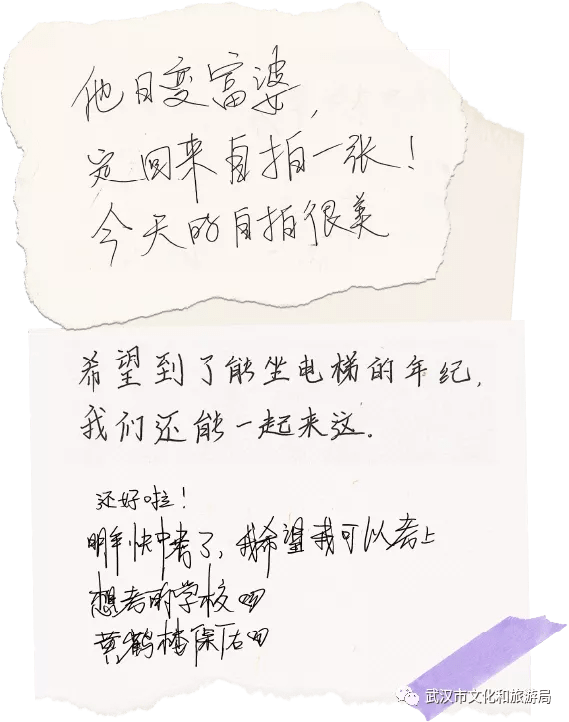 他日变富婆,
定回来自拍一张!
今天的自拍很美
希望到了能坐电梯的年纪,
我们还能一起来这.
还好啦!
明年快中考了,我希望我可以考上
想考的学校
黄鹤楼保佑
武汉市文化和旅游局